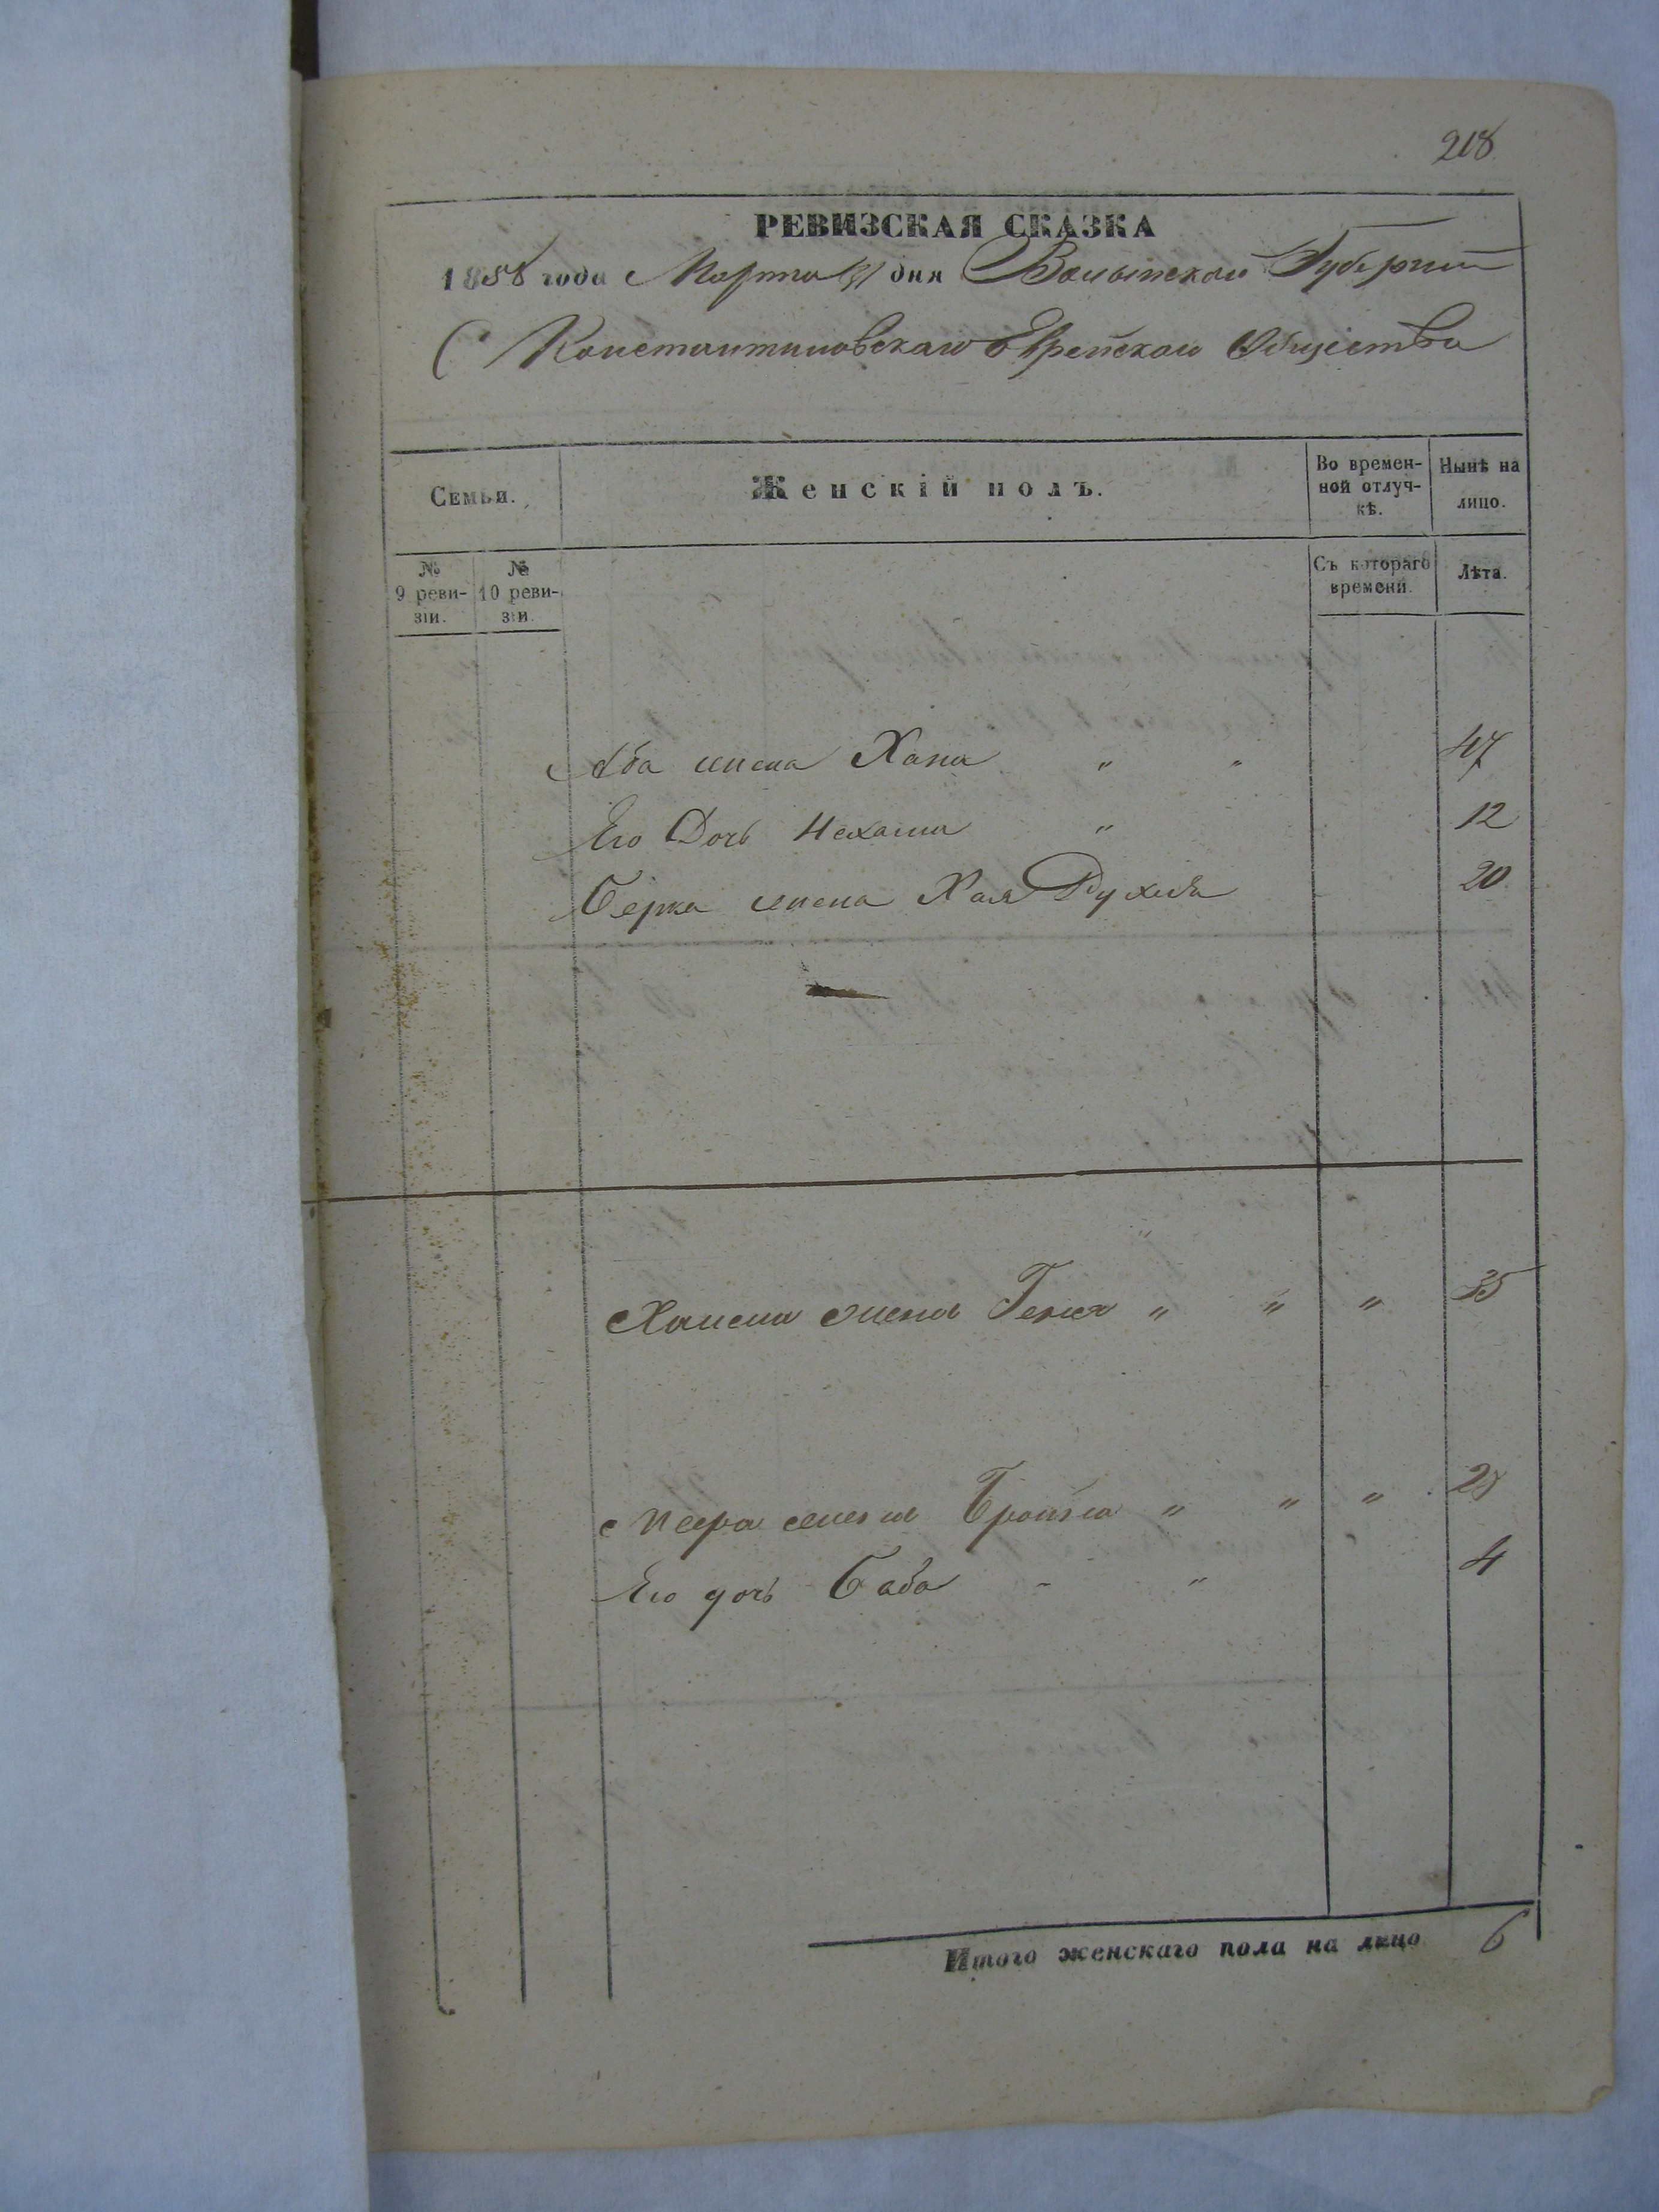 218
РЕВИЗСКАЯ СКАЗКА
1858 года Марта 31 дня Волынской Губернии
С Константиновскаго Еврейскаго Общества
Семьи.
Женскій полъ.
Во времен-
ной отлуч-
кѣ.
Нынѣ на
лицо.
№
9 реви-
зіи.
№
10 реви-
зіи.
Съ котораго
времени.
Лѣта.
Аба жена Хана " " 47
Его Дочь Нехама " 12
Берка жена Хая Рухля 20
жена Геня " " " 35
жена Брайна " " "
Его дочь Баба - " 4
Итого женскаго пола на лицо 6